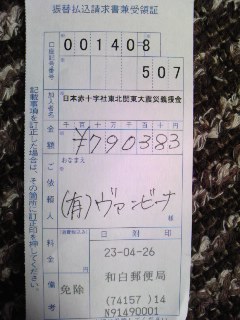 振替払込請求書兼受領証
口座記号番号
001408
507
加入者名
日本赤十字社東北関東大震災義援金
金額
千 百 十 万 千 百 十 円
¥790383
ご依頼人
おなまえ
(有)ヴァンビーナ
様
料金
(消費税込み)
免除
日附印
23-04-26
和白郵便局
(74157)14
N91490001
備考
記載事項を訂正した場合は、その箇所に訂正印を押してください。